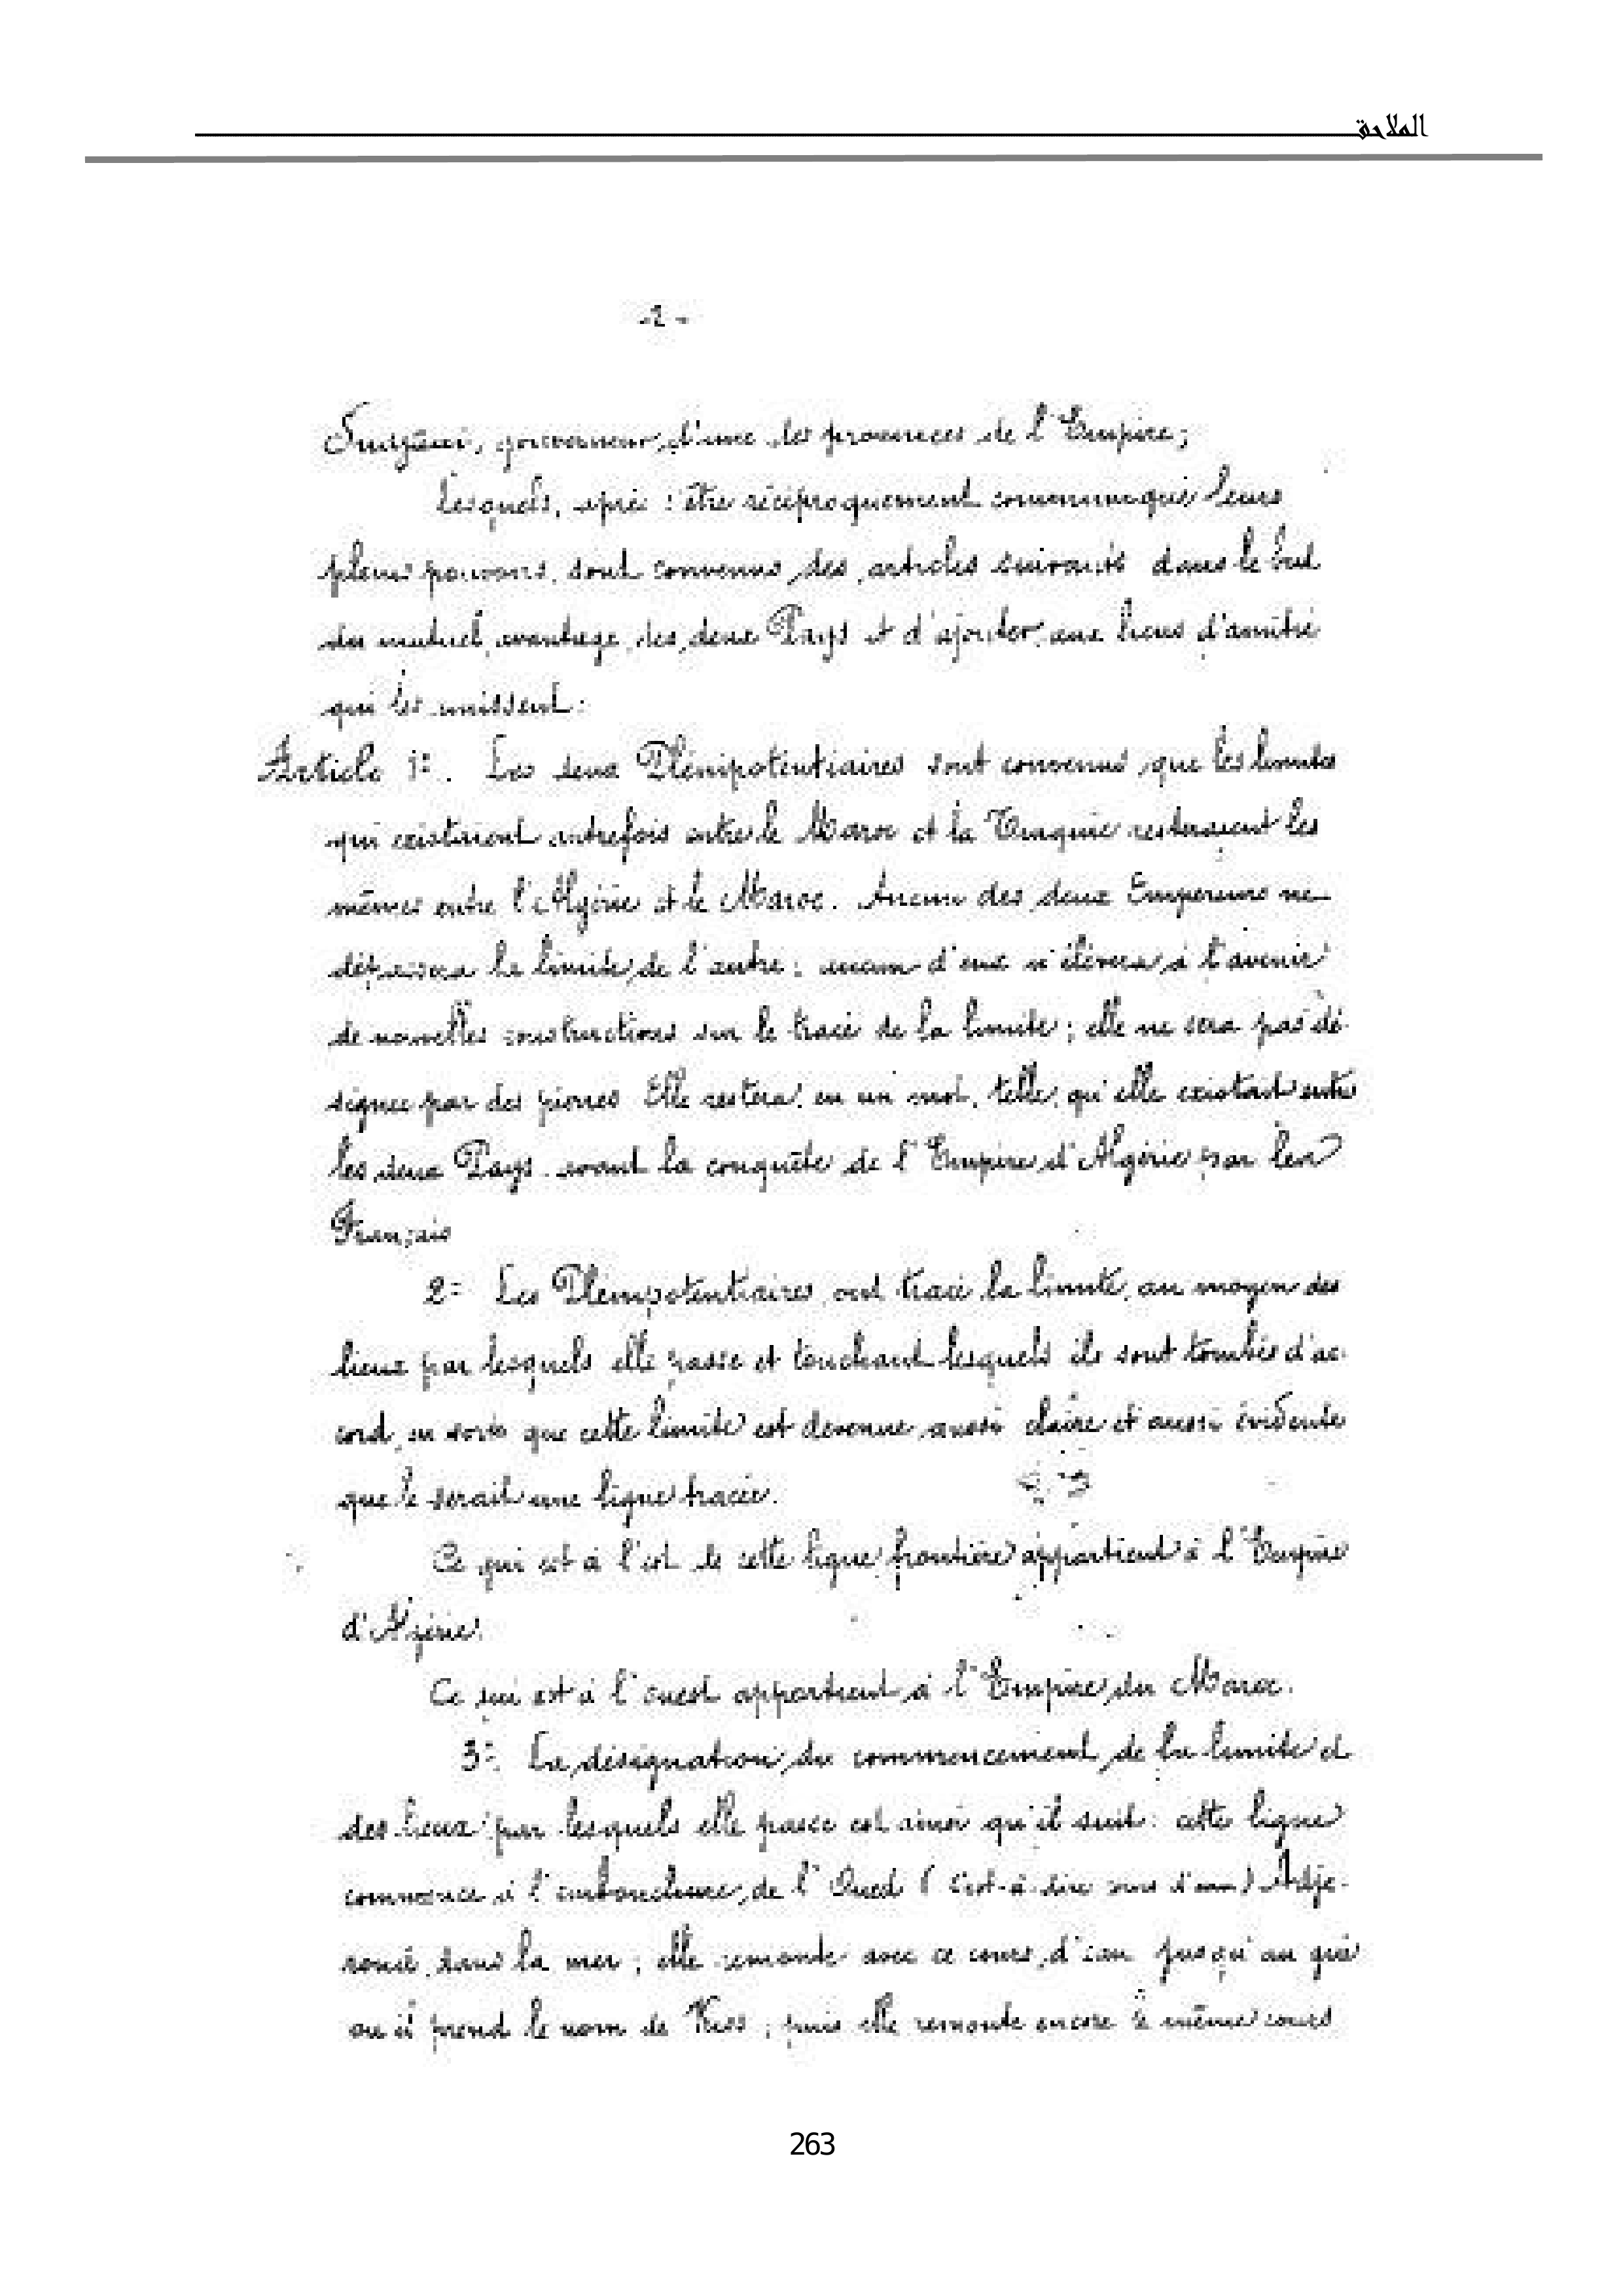 الملاحق
-2-
gouverneur d'une des provinces de l'Empire;
Lesquels, après s'être réciproquement communiqué leurs
pleins pouvoirs, sont convenus des articles suivants dans le but
du mutuel avantage des deux Pays et d'ajouter aux liens d'amitié
qui les unissent:
Article 1er. Les deux Plénipotentiaires sont convenus que les limites
qui existaient autrefois entre le Maroc et la Turquie resteraient les
mêmes entre l'Algérie et le Maroc. Aucun des deux Empereurs ne
dépassera la limite de l'autre; aucun d'eux n'élèvera à l'avenir
de nouvelles constructions sur le tracé de la limite; elle ne sera pas dé-
signée par des pierres. Elle restera, en un mot, telle qu'elle existait entre
les deux Pays avant la conquête de l'Empire d'Algérie par les
Français
2= Les Plénipotentiaires ont tracé la limite au moyen des
lieux par lesquels elle passe et touchant lesquels ils sont tombés d'ac-
cord, en sorte que cette limite est devenue aussi claire et aussi évidente
que le serait une ligne tracée.
Ce qui est à l'est de cette ligne frontière appartient à l'Empire
d'Algérie.
Ce qui est à l'ouest appartient à l'Empire du Maroc.
3=. La désignation du commencement de la limite et
des lieux par lesquels elle passe est ainsi qu'il suit: cette ligne
commence à l'embouchure de l'Oued (c'est-à-dire cours d'eau) Adje-
roud dans la mer; elle remonte avec ce cours d'eau jusqu'au gué
où il prend le nom de Kiss; puis elle remonte encore le même cours
263